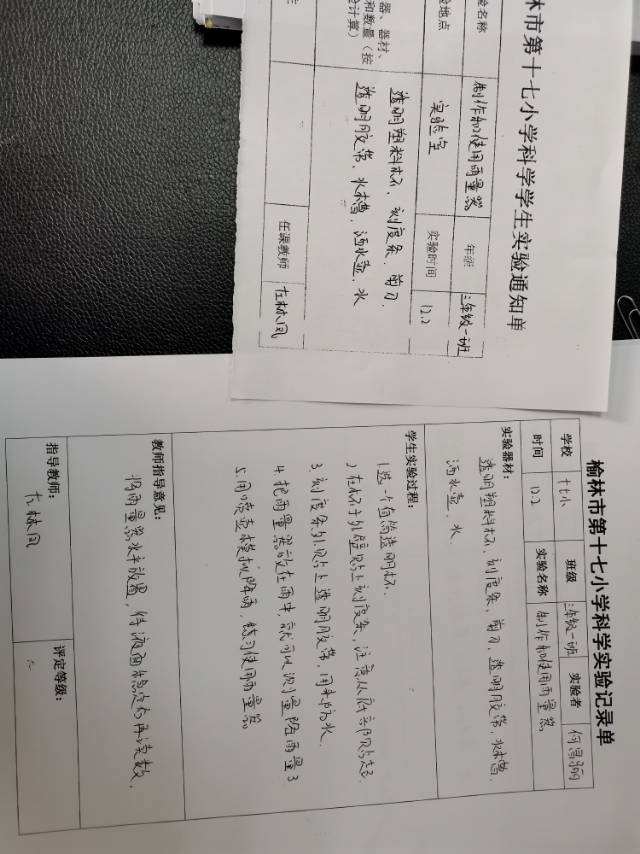 林市第十七小学科学学生实验通知单
验名称 制作和使用雨量器 年级 三年级一班
验地点 实验室 实验时间 12.2
器、器材、
和数量（按
计算）
透明塑料杯、刻度条、剪刀、
透明胶带、水槽、洒水壶、水
任课教师
榆林市第十七小学科学实验记录单
学校 十七小 班级 三年级一班 实验者
时间 12.2 实验名称 制作和使用雨量器
实验器材：
透明塑料杯、刻度条、剪刀、透明胶带、水槽、
洒水壶、水
学生实验过程：
1.选一个直筒透明杯.
2.在杯子外壁贴上刻度条，注意从底部贴起.
3.刻度条外贴上透明胶带，用来防水.
4.把雨量器放在雨中，就可以测量降雨量了
5.用喷壶模拟降雨，练习使用雨量器
教师指导意见：
将雨量器水平放置，待液面稳定后再读数.
指导教师： 评定等级：